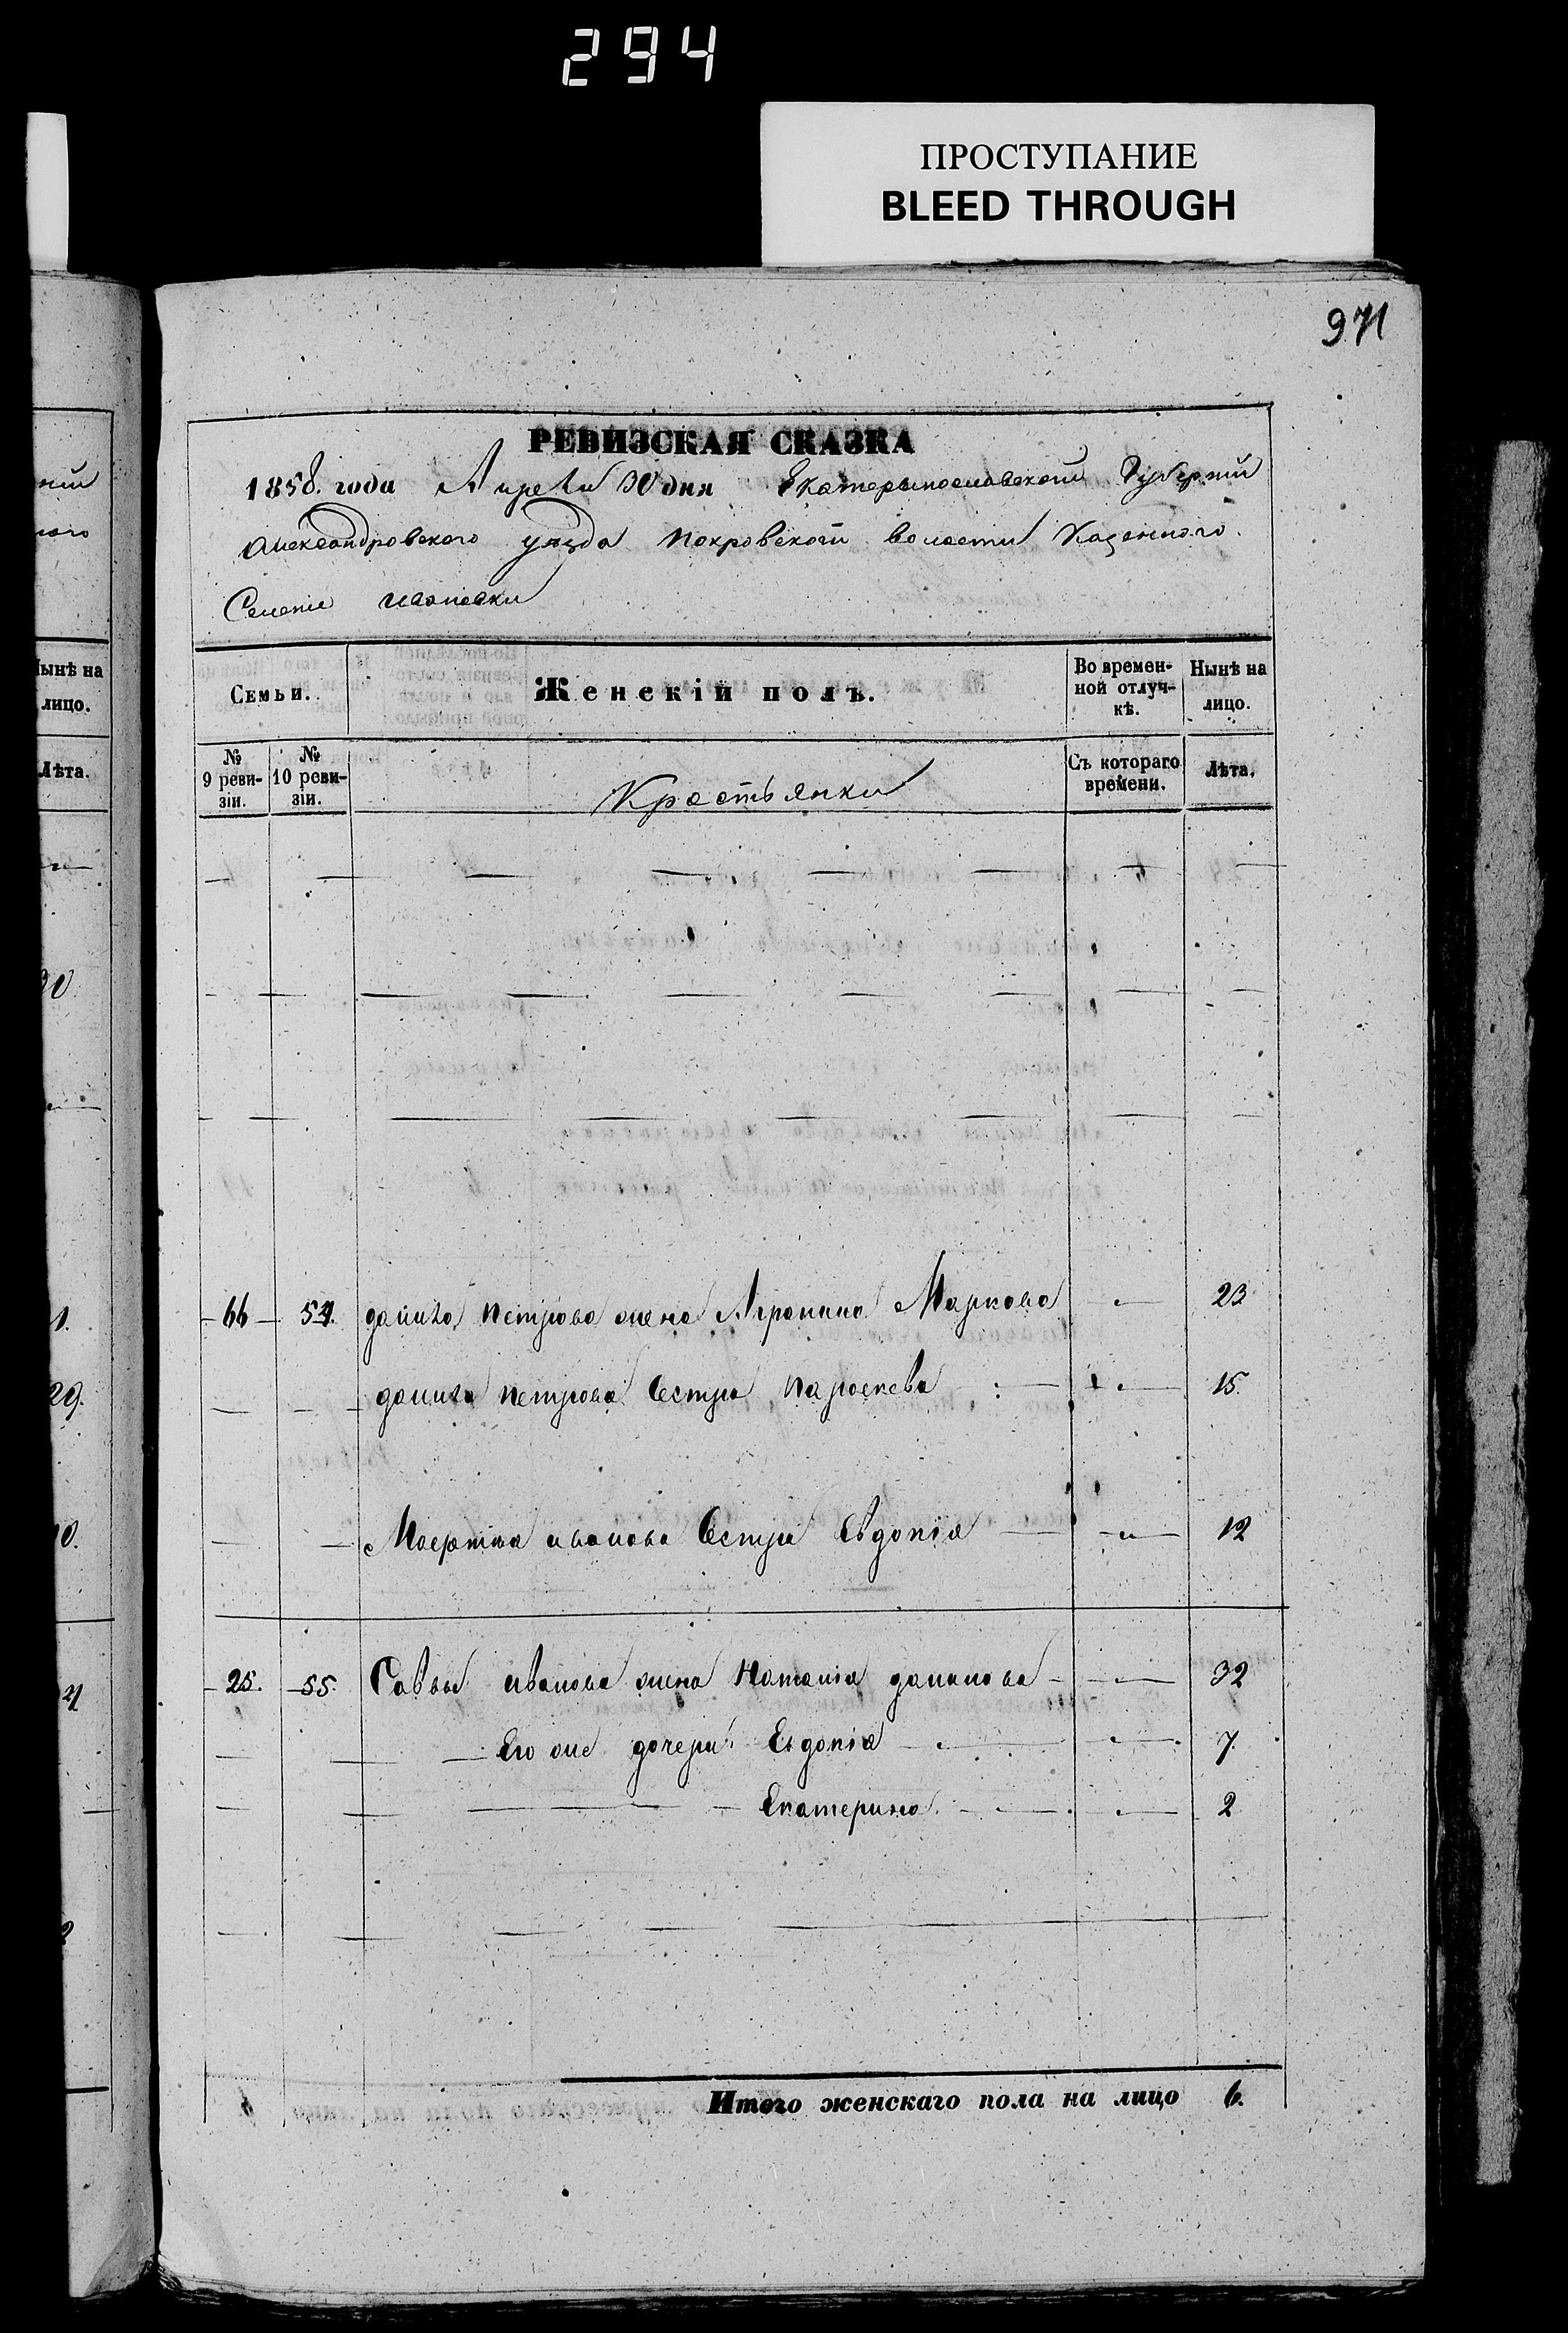 294
ПРОСТУПАНИЕ
BLEED THROUGH
971
РЕВИЗСКАЯ СКАЗКА
1858. года Апреля 30 дня Екатеринославской Губерніи
Александровского уезда Покровской волости Казенного
Селенія Ивановки
Семьи. Женскій полъ. Во временной отлучкѣ. Нынѣ на лицо.
№ 9 ревизіи. № 10 ревизіи. Крестьянки Съ котораго времени. Лѣта.
66 54. данила петрова жена Агрипина Маркова 23
данила петрова Сестра параскева 15.
ивонова Сестра Евдокія 12
25. 55. Саввы ивонова жена Наталія данилова 32
Его же дочери: Евдокія 7.
Екатерина. 2
Итого женскаго пола на лицо 6.
нІи
ного
Нынѣ на
лицо.
Лѣта.
29.